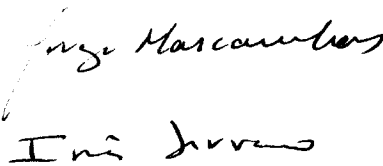 Jorge Mascarenhas
Inês Serrano